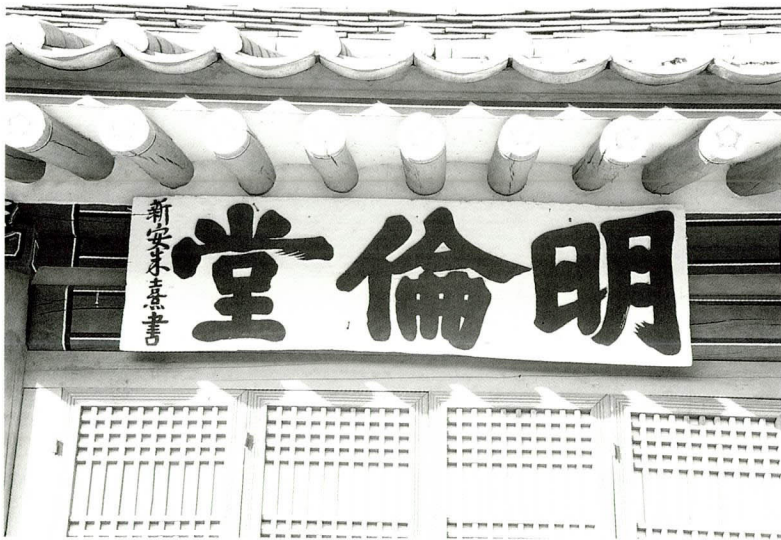 明倫堂
新安朱熹書